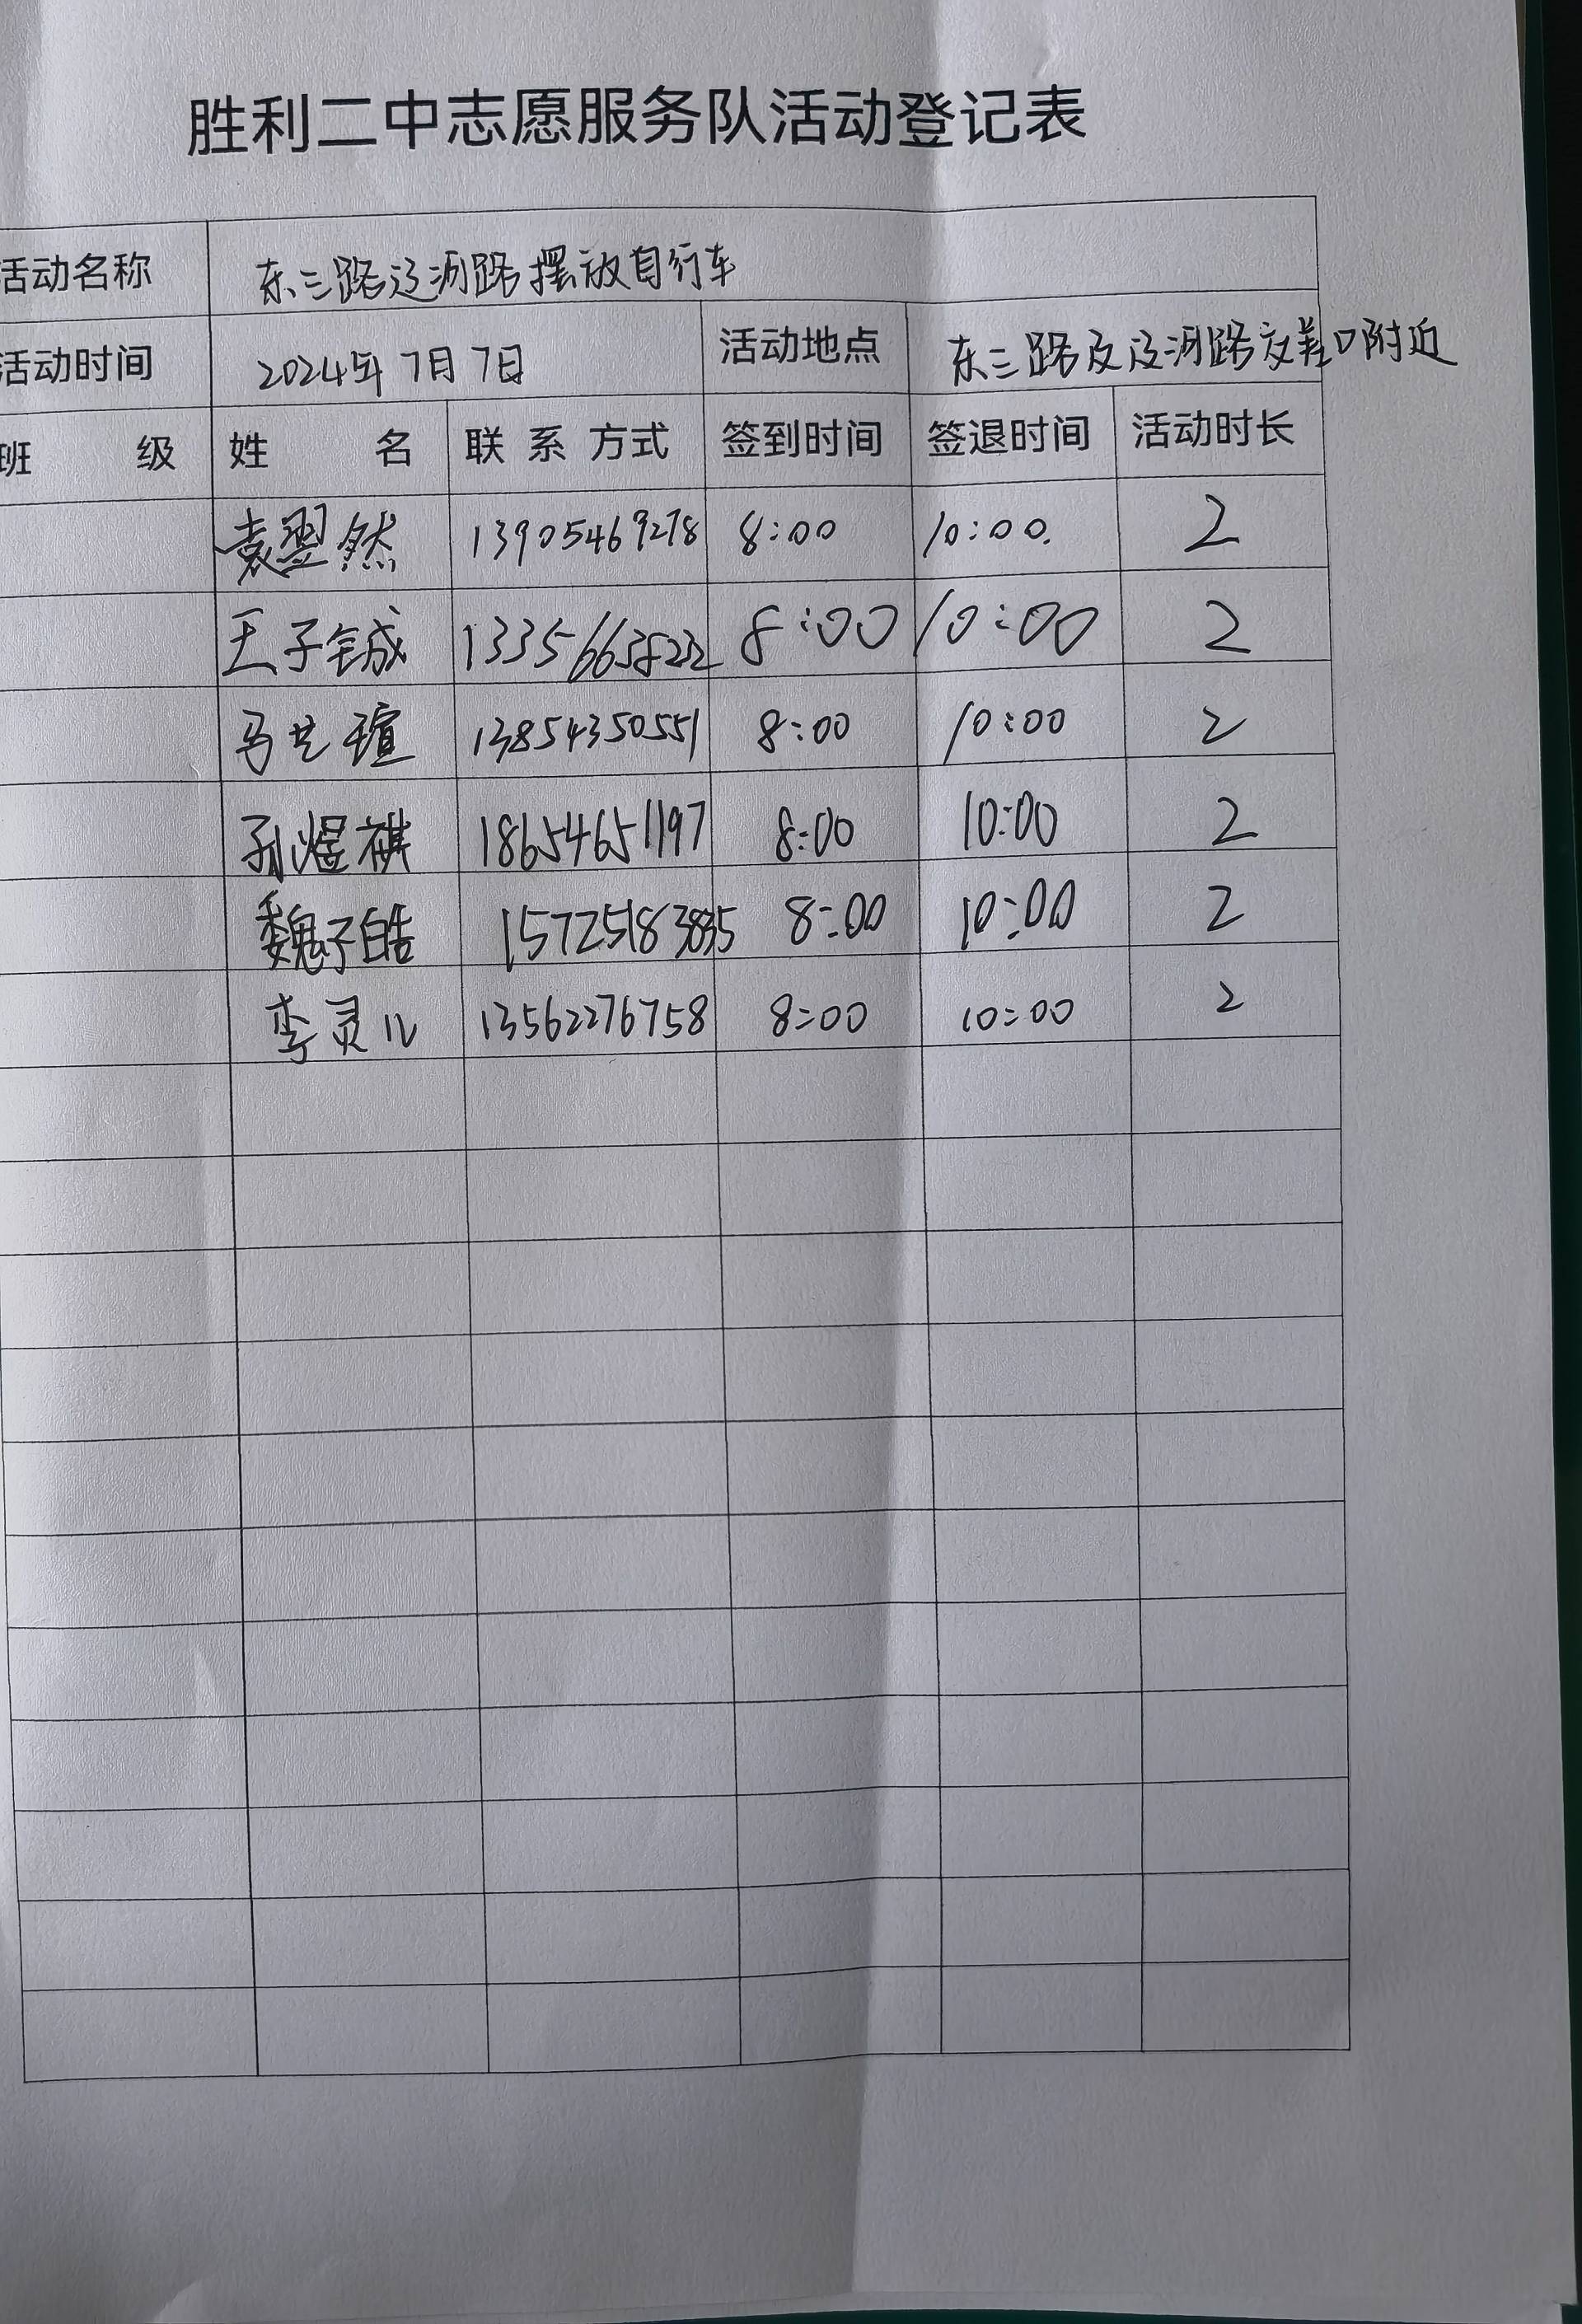 胜利二中志愿服务队活动登记表
活动名称 东三路辽河路摆放自行车
活动时间 2024年7月7日 活动地点 东三路及辽河路交叉口附近
班 级 姓 名 联系方式 签到时间 签退时间 活动时长
袁翌然 13905469278 8:00 10:00. 2
王子铖 8:00 10:00 2
马艺瑄 13854350551 8:00 10:00 2
孙煜祺 18654651197 8:00 10:00 2
魏子皓 8:00 10:00 2
李灵儿 13562276758 8:00 10:00 2